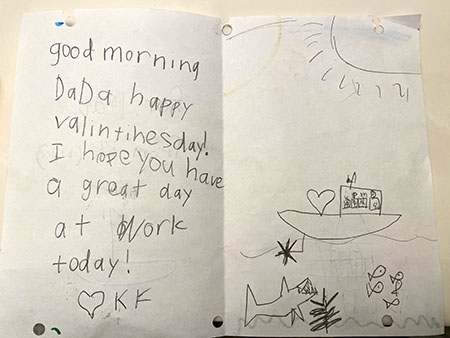 good morning
DaDa happy
valintinesday!
I hope you have
a great day
at Work
today!
♡ KF